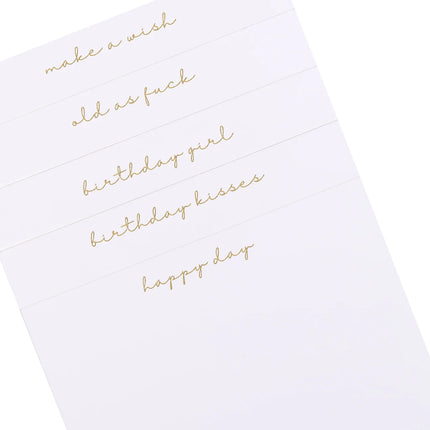 make a wish
old as fuck
birthday girl
birthday kisses
happy day